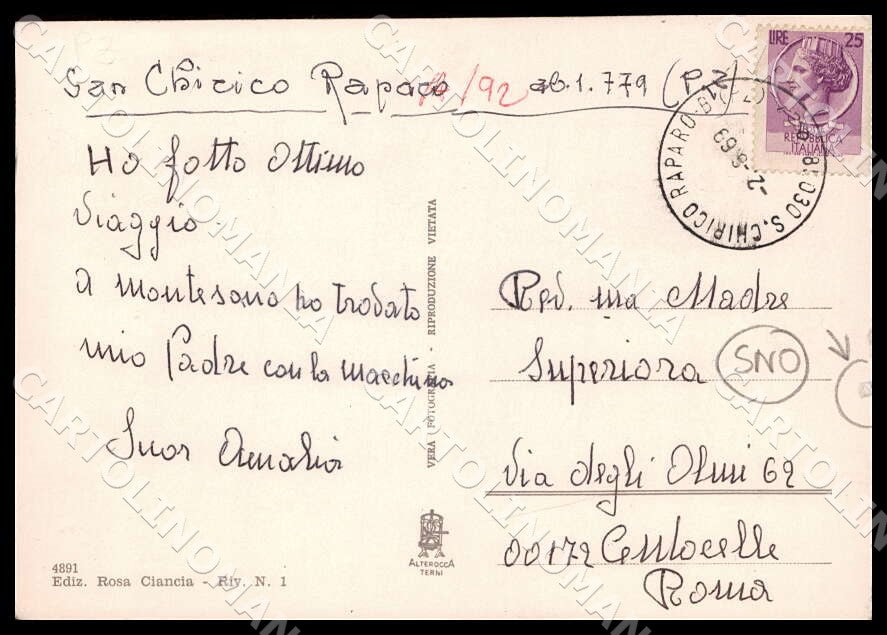 LIRE 25
REPUBBLICA
ITALIANA
San Chirico Raparo /92 ab. 1.779 (PZ)
85030 S. CHIRICO RAPARO
-2-8-69
Ho fatto ottimo
viaggio
a montesano ho trovato
mio Padre con la macchina
Suor Amalia
VERA FOTOGRAFIA - RIPRODUZIONE VIETATA
Rev. ma Madre
Superiora
SNO
Via degli Olmi 62
00172 Centocelle
Roma
4891
Ediz. Rosa Ciancia - Riv. N. 1
ALTEROCCA
TERNI
CARTOLINOMANIA